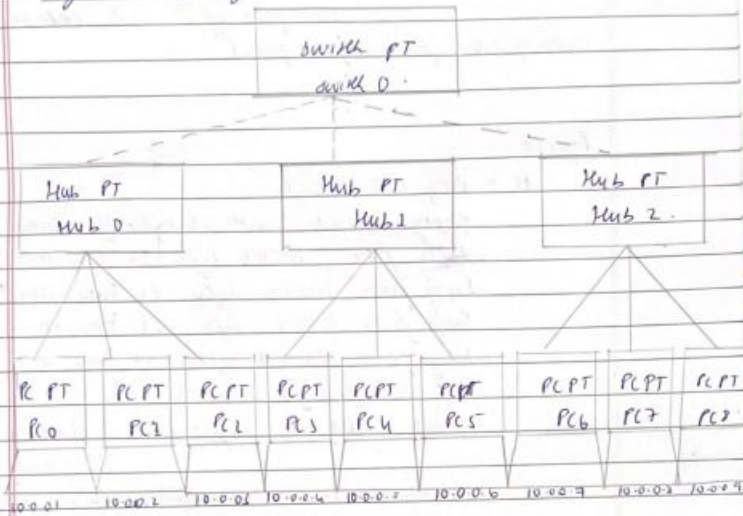 Switch PT
Switch 0.
Hub PT
Hub 0.
Hub PT
Hub1
Hub PT
Hub 2.
PC PT
PC0
PC PT
PC1
PC PT
PC2
PCPT
PC3
PCPT
PC4
PCPT
PC5
PC PT
PC6
PCPT
PC7
PC PT
PC8
10.0.0.1
10.0.0.2
10.0.0.3
10.0.0.4
10.0.0.5
10.0.0.6
10.0.0.7
10.0.0.8
10.0.0.9